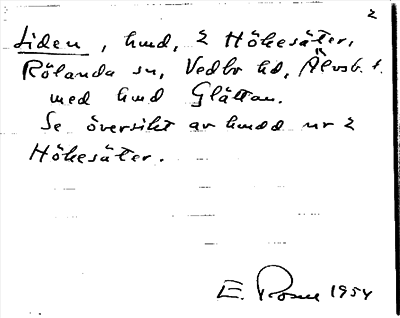 2
Liden, hmd, 2 Hökesäter,
Rölanda sn, Vedbo hd, Älvsb. l.
med hmd Glättan.
Se översikt av hmdd nr 2
Hökesäter.
E. Rosell 1954